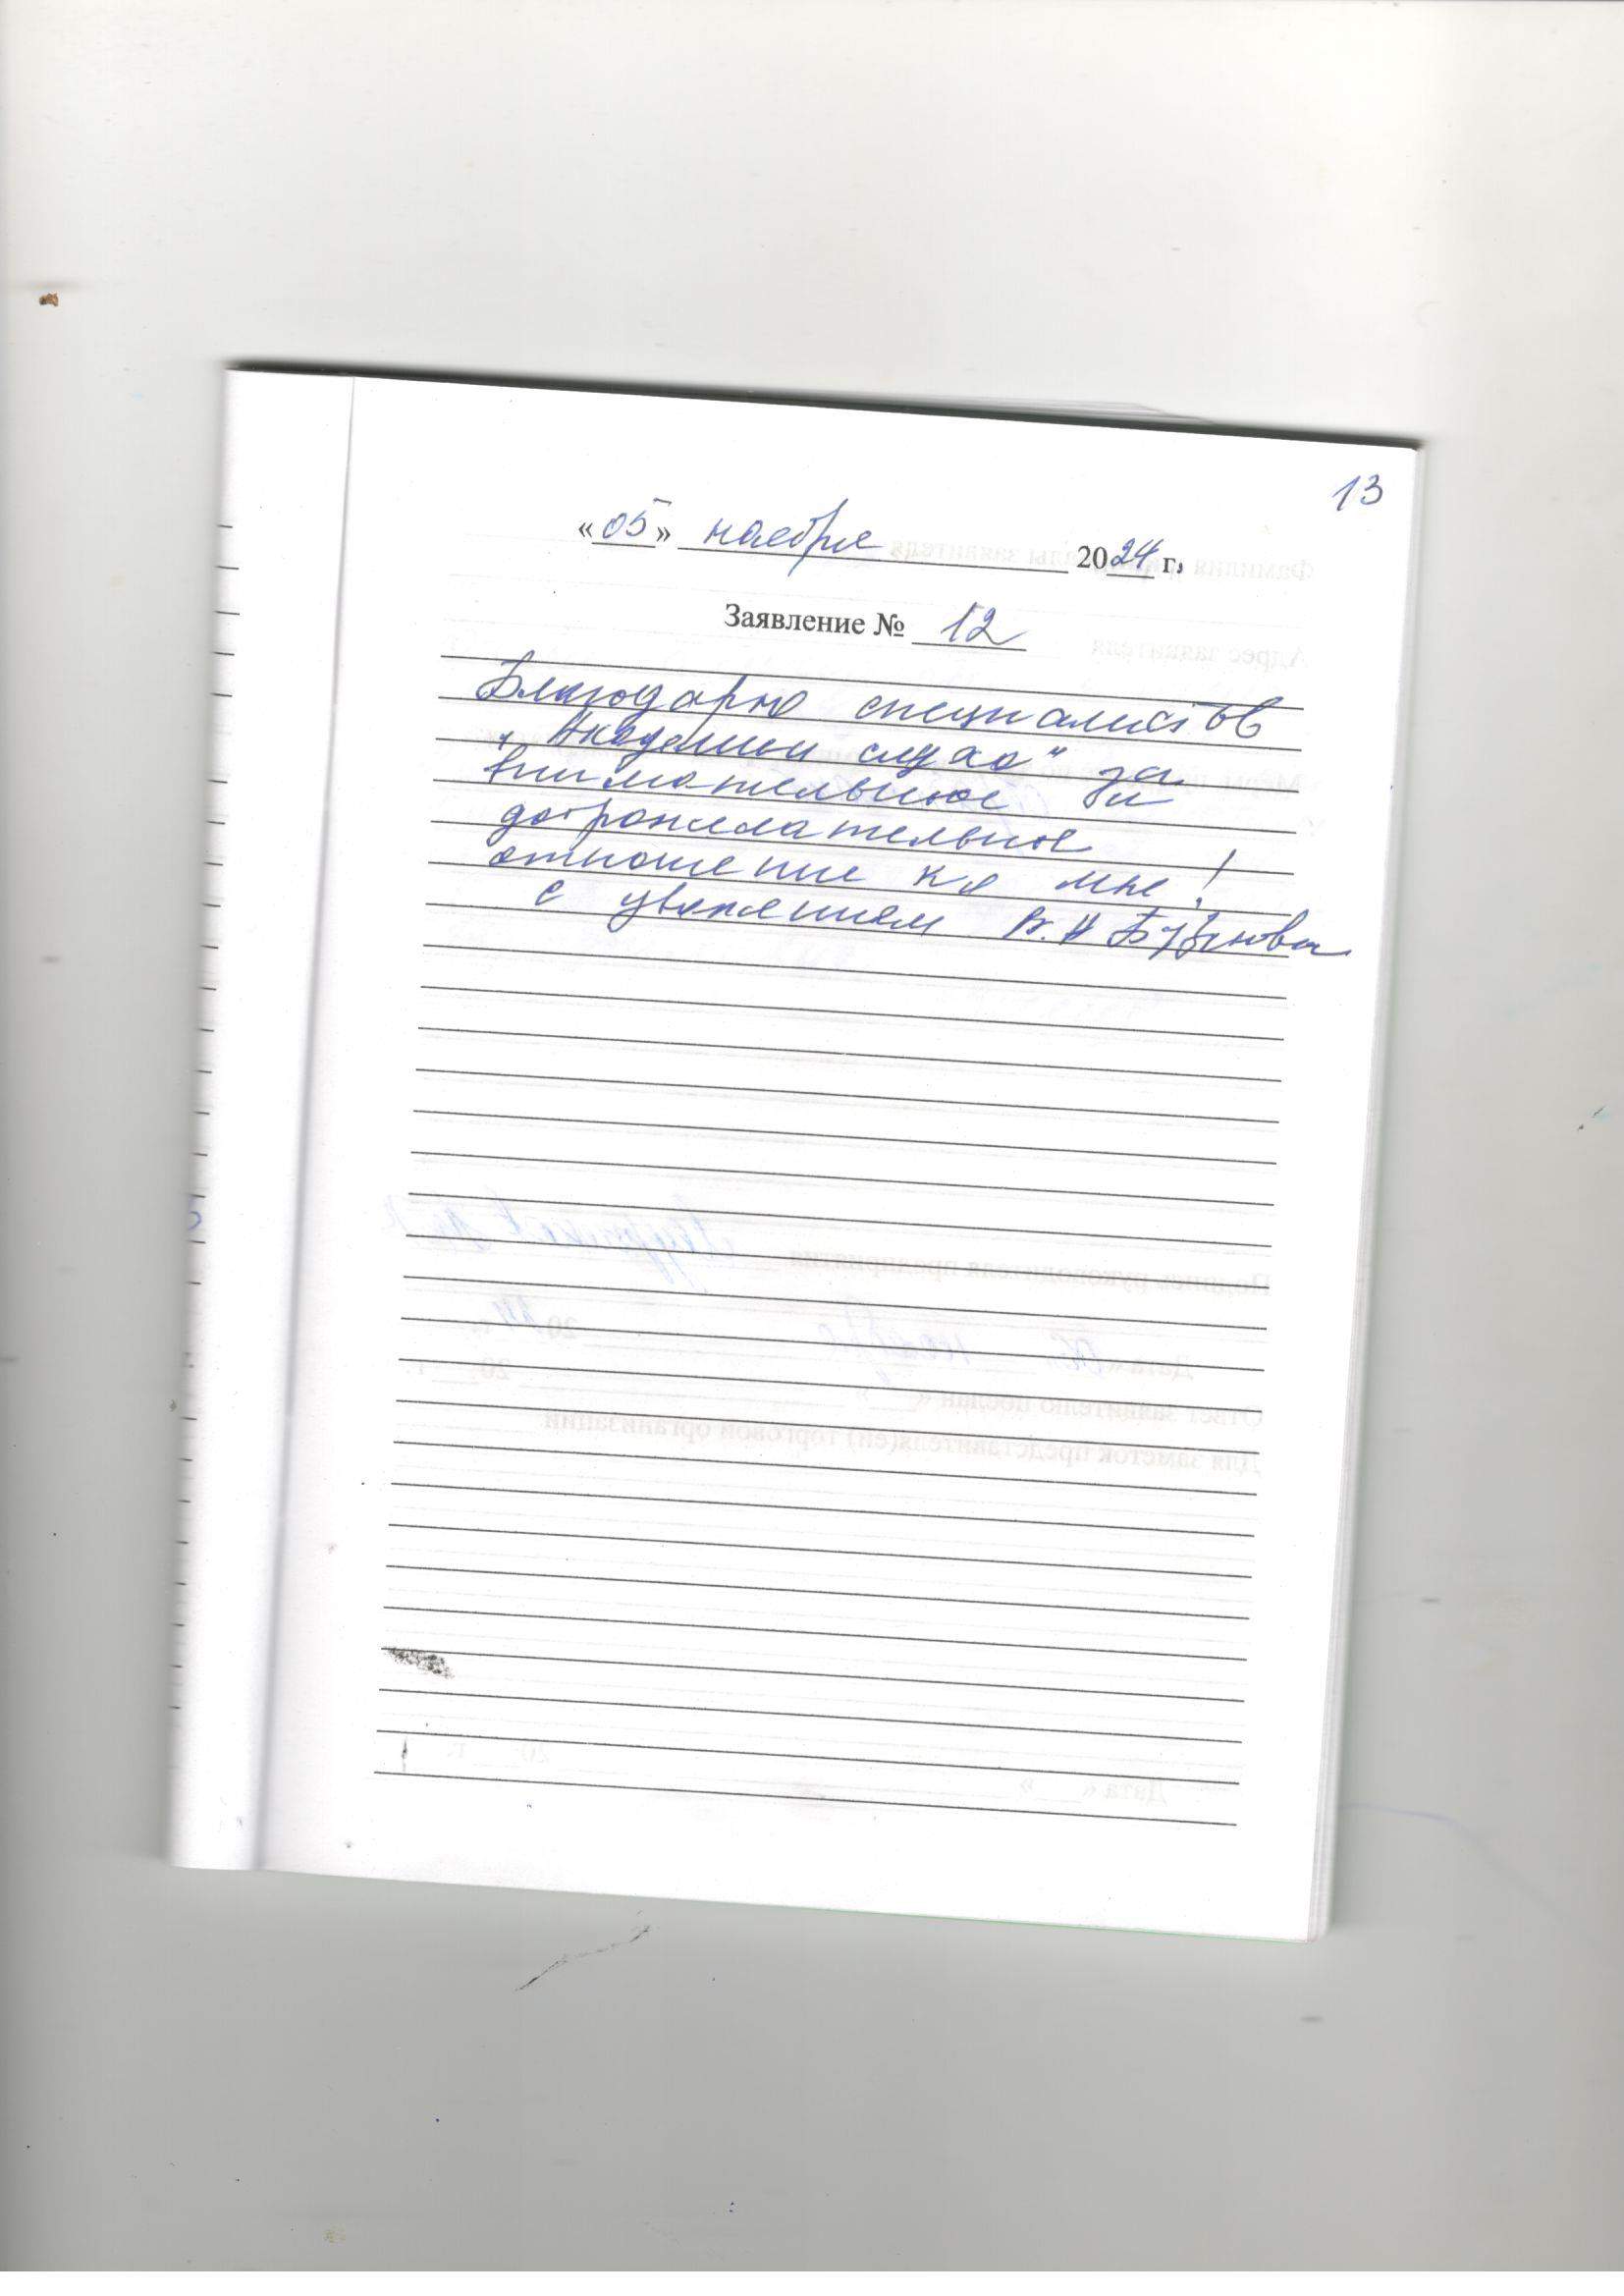 13
«05» ноября 2024 г.
Заявление № 12
Благодарю специалистов
„Академии слуха" за
внимательное и
доброжелательное
отношение ко мне!
с уважением В. Н